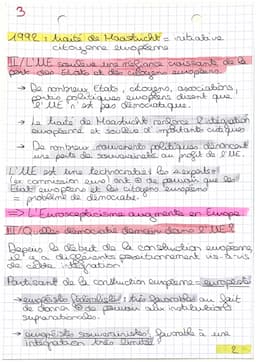 3
1992 : traité de Maastricht = initiative
citoyenne européenne
II/ L'UE soulève une méfiance croissante de la
part des Etats et des citoyens européens
→ De nombreux Etats, citoyens, associations,
partis politiques européens disent que
l'UE n'est pas démocratique.
→ Le traité de Maastricht renforce l'intégration
européenne et soulève d'importants critiques
→ De nombreux mouvements politiques dénoncent
une perte de souveraineté au profit de l'UE.
L'UE est une technocratie : les experts
(ex commission euro) ont ⊕ de pouvoir que les
Etats européens et les citoyens européens
= problème de démocratie.
=> L'Euroscepticisme augmente en Europe
III/ Quelle démocratie demain dans l'UE ?
Depuis le début de la construction européenne,
il y a différents positionnement vis-à-vis
de cette intégration
Partisant de la construction européenne = européiste
→ européiste fédéraliste : très favorable au fait
de donner ⊕ de pouvoir aux institutions
supranationales.
→ européiste souverainiste : favorable à une
intégration très limitée
2